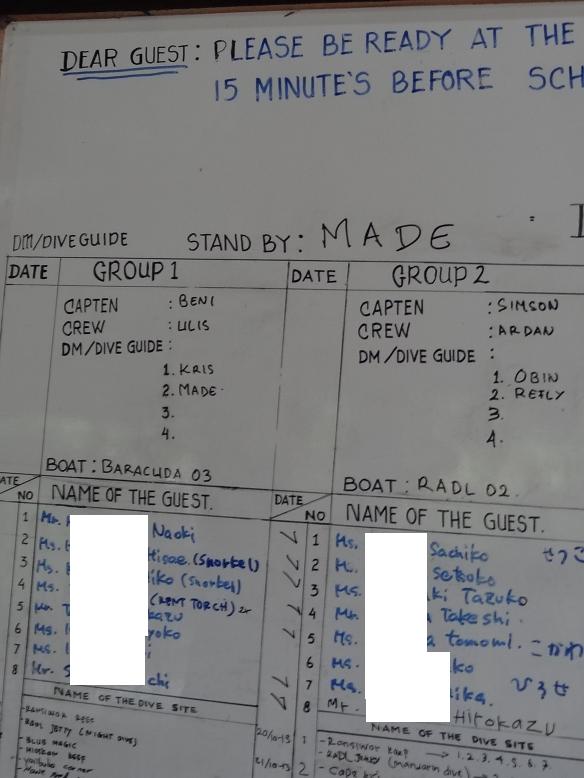 DEAR GUEST: PLEASE BE READY AT THE
15 MINUTE'S BEFORE SCH
DM/DIVEGUIDE STAND BY: MADE
DATE GROUP 1
CAPTEN : BENI
CREW : ULIS
DM/DIVE GUIDE :
1. KRIS
2. MADE
3.
4.
BOAT : BARACUDA 03
DATE GROUP 2
CAPTEN : SIMSON
CREW : ARDAN
DM/DIVE GUIDE :
1. OBIN
2. REFLY
3.
4.
BOAT : RADL 02.
NO NAME OF THE GUEST.
1 Mr. Naoki
2 Ms. Hisae. (Snorkel)
3 Ms. iko (Snorkel)
4 Ms. (RENT TORCH)
5 Mr. T kazu
6 Ms. yoko
7 Ms. i
8 Mr. S chi
NAME OF THE DIVE SITE
- RADL JETTY (NIGHT DIVE)
- BLUE MAGIC
DATE NO NAME OF THE GUEST.
1 Ms. Sachiko せつこ
2 M. Setsuko
3 Ms. ki Tazuko
4 Mr. Takeshi.
5 Ms. a tomomi. こがわ
6 Ms. ko
7 Ms. ika. ひろせ
8 Mr. Hirokazu
NAME OF THE DIVE SITE
20/10-13 1 → 1. 2. 3. 4. 5. 6. 7.
- RADL Jetty (mandarin dive)
21/10-13 2